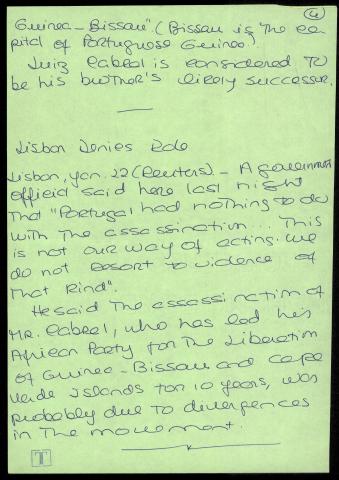 (4)
Guinea-Bissau". (Bissau is the ca-
pital of Portuguese Guinea).
Luiz Cabral is considered to
be his brother's likely successor.
Lisbon Denies Role
Lisbon, Jan. 22 (Reuters). - A government
official said here last night
that "Portugal had nothing to do
with the assassination... This
is not our way of acting. We
do not resort to violence of
that kind".
He said the assassination of
Mr. Cabral, who has led his
African Party for the Liberation
of Guinea-Bissau and Cape
Verde Islands for 10 years, was
probably due to divergences
in the movement.
T